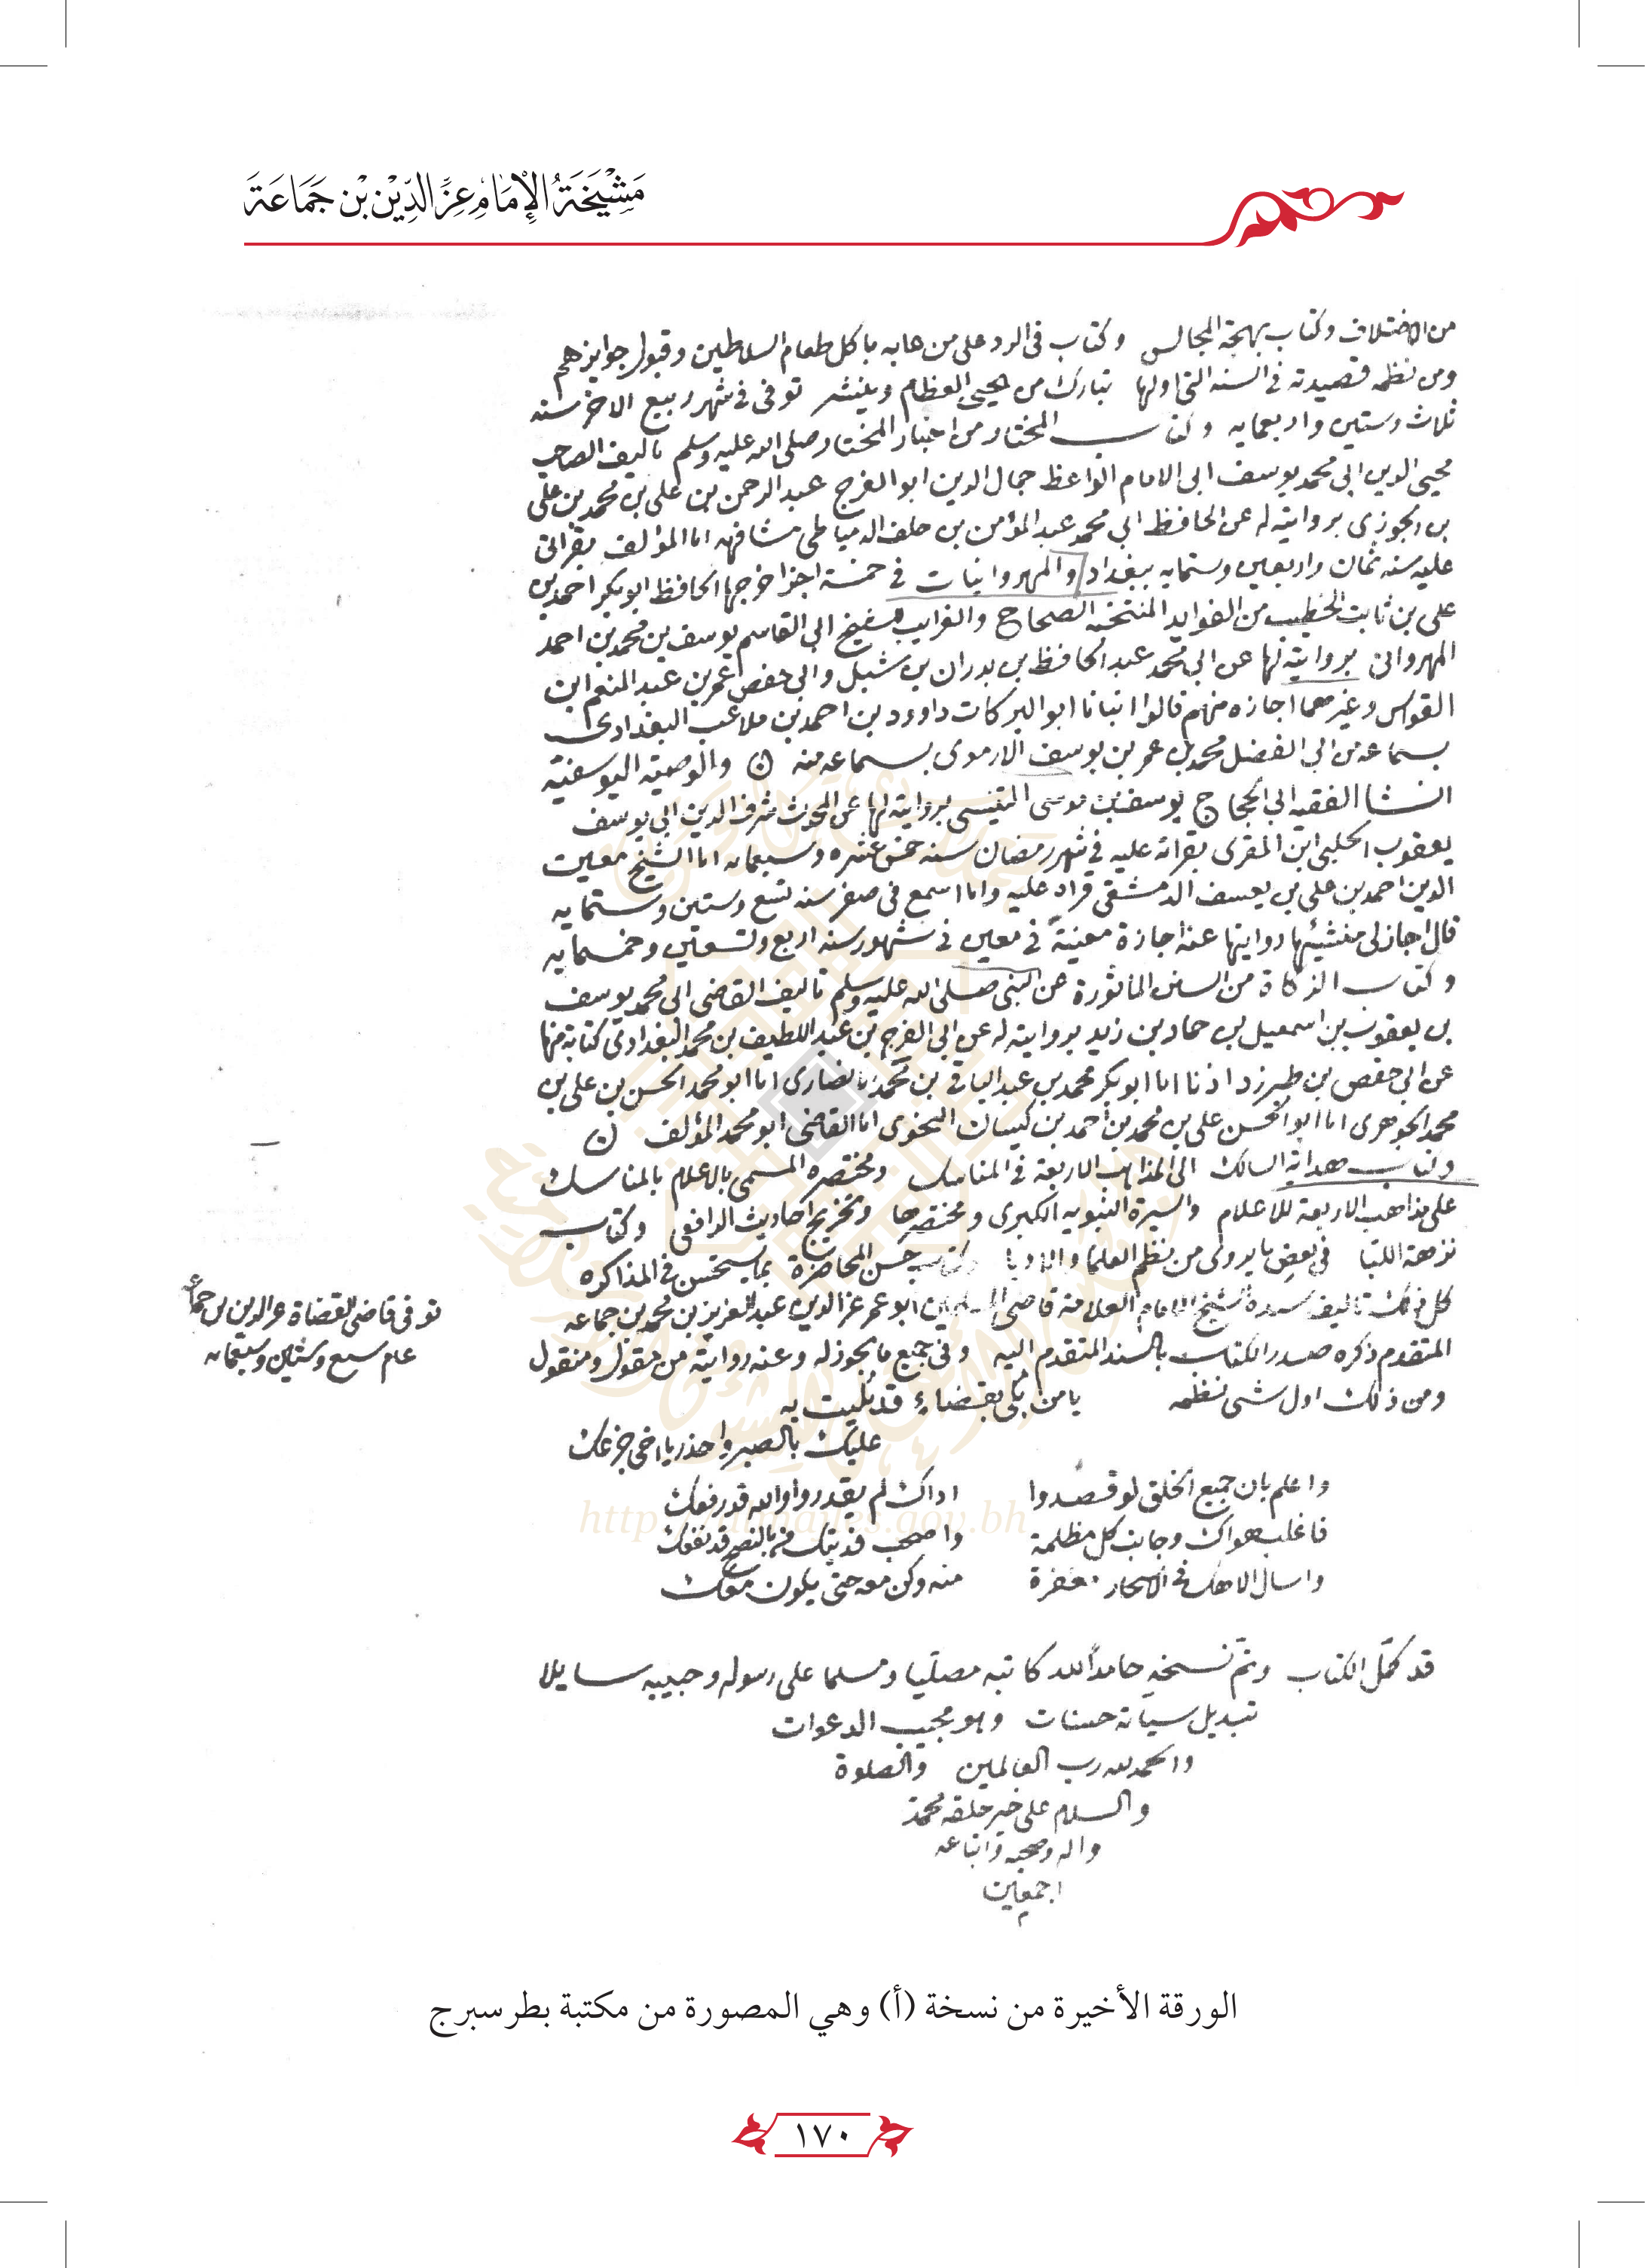 مَشْيَخَةُ الإِمَامِ عِزِّ الدِّيْنِ بْنِ جَمَاعَةَ
من الاختلاف وكتاب بهجة المجالس وكتاب في الرد على من عابه باكل طعام السلاطين وقبول جوايزهم
ومن نظمه قصيدته في السنه التي اولها تبارك من يحيي العظام وينشر توفى في شهر ربيع الاخر سنه
ثلاث وستين واربعمايه وكتاب المختار من اخبار المختار صلى الله عليه وسلم تاليف الصاحب
محيى الدين ابى محمد يوسف ابى الامام الواعظ جمال الدين ابو الفرج عبد الرحمن بن على بن محمد بن على
بن الجوزى بروايته له عن الحافظ ابي محمد عبد المؤمن بن خلف الدمياطى مشافهه اما المؤلف بقراتى
عليه سنه ثمان واربعين وستمايه ببغداد والمهروانيات في خمسة اجزا خرجها الحافظ ابو بكر احمد بن
على بن ثابت الخطيب من الفوايد المنتخبه الصحاح والغرايب للشيخ ابى القاسم يوسف بن محمد بن احمد
المهروانى بروايته لها عن ابى محمد عبد الحافظ بن بدران بن شبل وابى حفص عمر بن عبد المنعم ابن
القواس وغيرهما اجازه منهم قالوا انبانا ابو البركات داوود بن احمد بن ملاعب البغدادى
بسماعه من ابى الفضل محمد بن عمر بن يوسف الارموى بسماعه منه ن والوصية اليوسفية
انشا الفقيه ابى الحجاج يوسف بن موسى بروايته لها عن المحدث شرف الدين ابى يوسف
يعقوب الحلبى ابن المقرى بقراته عليه في شهر رمضان سنه خمس عشره وسبعمايه اما الشيخ معين
الدين احمد بن على بن يوسف الدمشقى قراه عليه وانا اسمع فى صفر سنه تسع وستين وستمايه
قال اجاز لى منشيها روايتها عنه اجازة معينة في معين في شهور سنه اربع وتسعين وخمسمايه
وكتاب الزكاة من السنن الماثورة عن النبى صلى الله عليه وسلم تاليف القاضى ابى محمد يوسف
بن يعقوب بن اسمعيل بن حماد بن زيد بروايته له عن ابى الفرج بن عبد اللطيف بن محمد البغدادى كتابة منها
عن ابى حفص بن طبرزد اذنا اما ابو بكر محمد بن عبد الباقى بن محمد الانصارى اما ابو محمد الحسن بن على بن
محمد الجوهرى اما ابو الحسن على بن محمد بن احمد بن كيسان النحوى اما القاضى ابو محمد المؤلف ن
وكتاب هداية السالك الى المذاهب الاربعة في المناسك ومختصره المسمى بالاعلام بالمناسك
على مذاهب الاربعة للاعلام والسيرة النبويه الكبرى ومختصرها وتخريج احاديث الرافعى وكتاب
نزهة اللبّا في بعض ما يروى من نظم العلما والادبا وكتاب حسن المحاضرة بما يستحسن في المذاكره
كل ذلك تاليف سيده الشيخ الامام العلامه قاضى المسلمين ابو عمر عز الدين عبد العزيز بن محمد بن جماعه
المتقدم ذكره صدر الكتاب بالسند المتقدم اليه وفى جميع ما يجوز له وعنه روايته من مقول ومنقول
توفى قاضى القضاة عز الدين بن جماعه
عام سبع وستين وسبعمايه
ومن ذلك اول شى نظمه يا من بكى بقضاء قد بُليت به
عليك بالصبر واحذر يا اخى جزعك
واعلم بان جميع الخلق لو قصدوا اذاك لم يقدروا والله قد رفعك
فاغلب هواك وجانب كل مظلمة واصحب فديتك من بالنصح قد نفعك
واسال الاهك في الاسحار مغفرة منه وكن معه حتى يكون معك
قد كمّل الكتاب وتمّ نسخه حامداً لله كاتبه مصليا ومسلما على رسوله وحبيبه سايلا
تبديل سيئاته حسنات وهو مجيب الدعوات
والحمد لله رب العالمين والصلوة
والسلام على خير خلقه محمد
واله وصحبه واتباعه
اجمعين
م
الورقة الأخيرة من نسخة (أ) وهي المصورة من مكتبة بطرسبرج
١٧٠